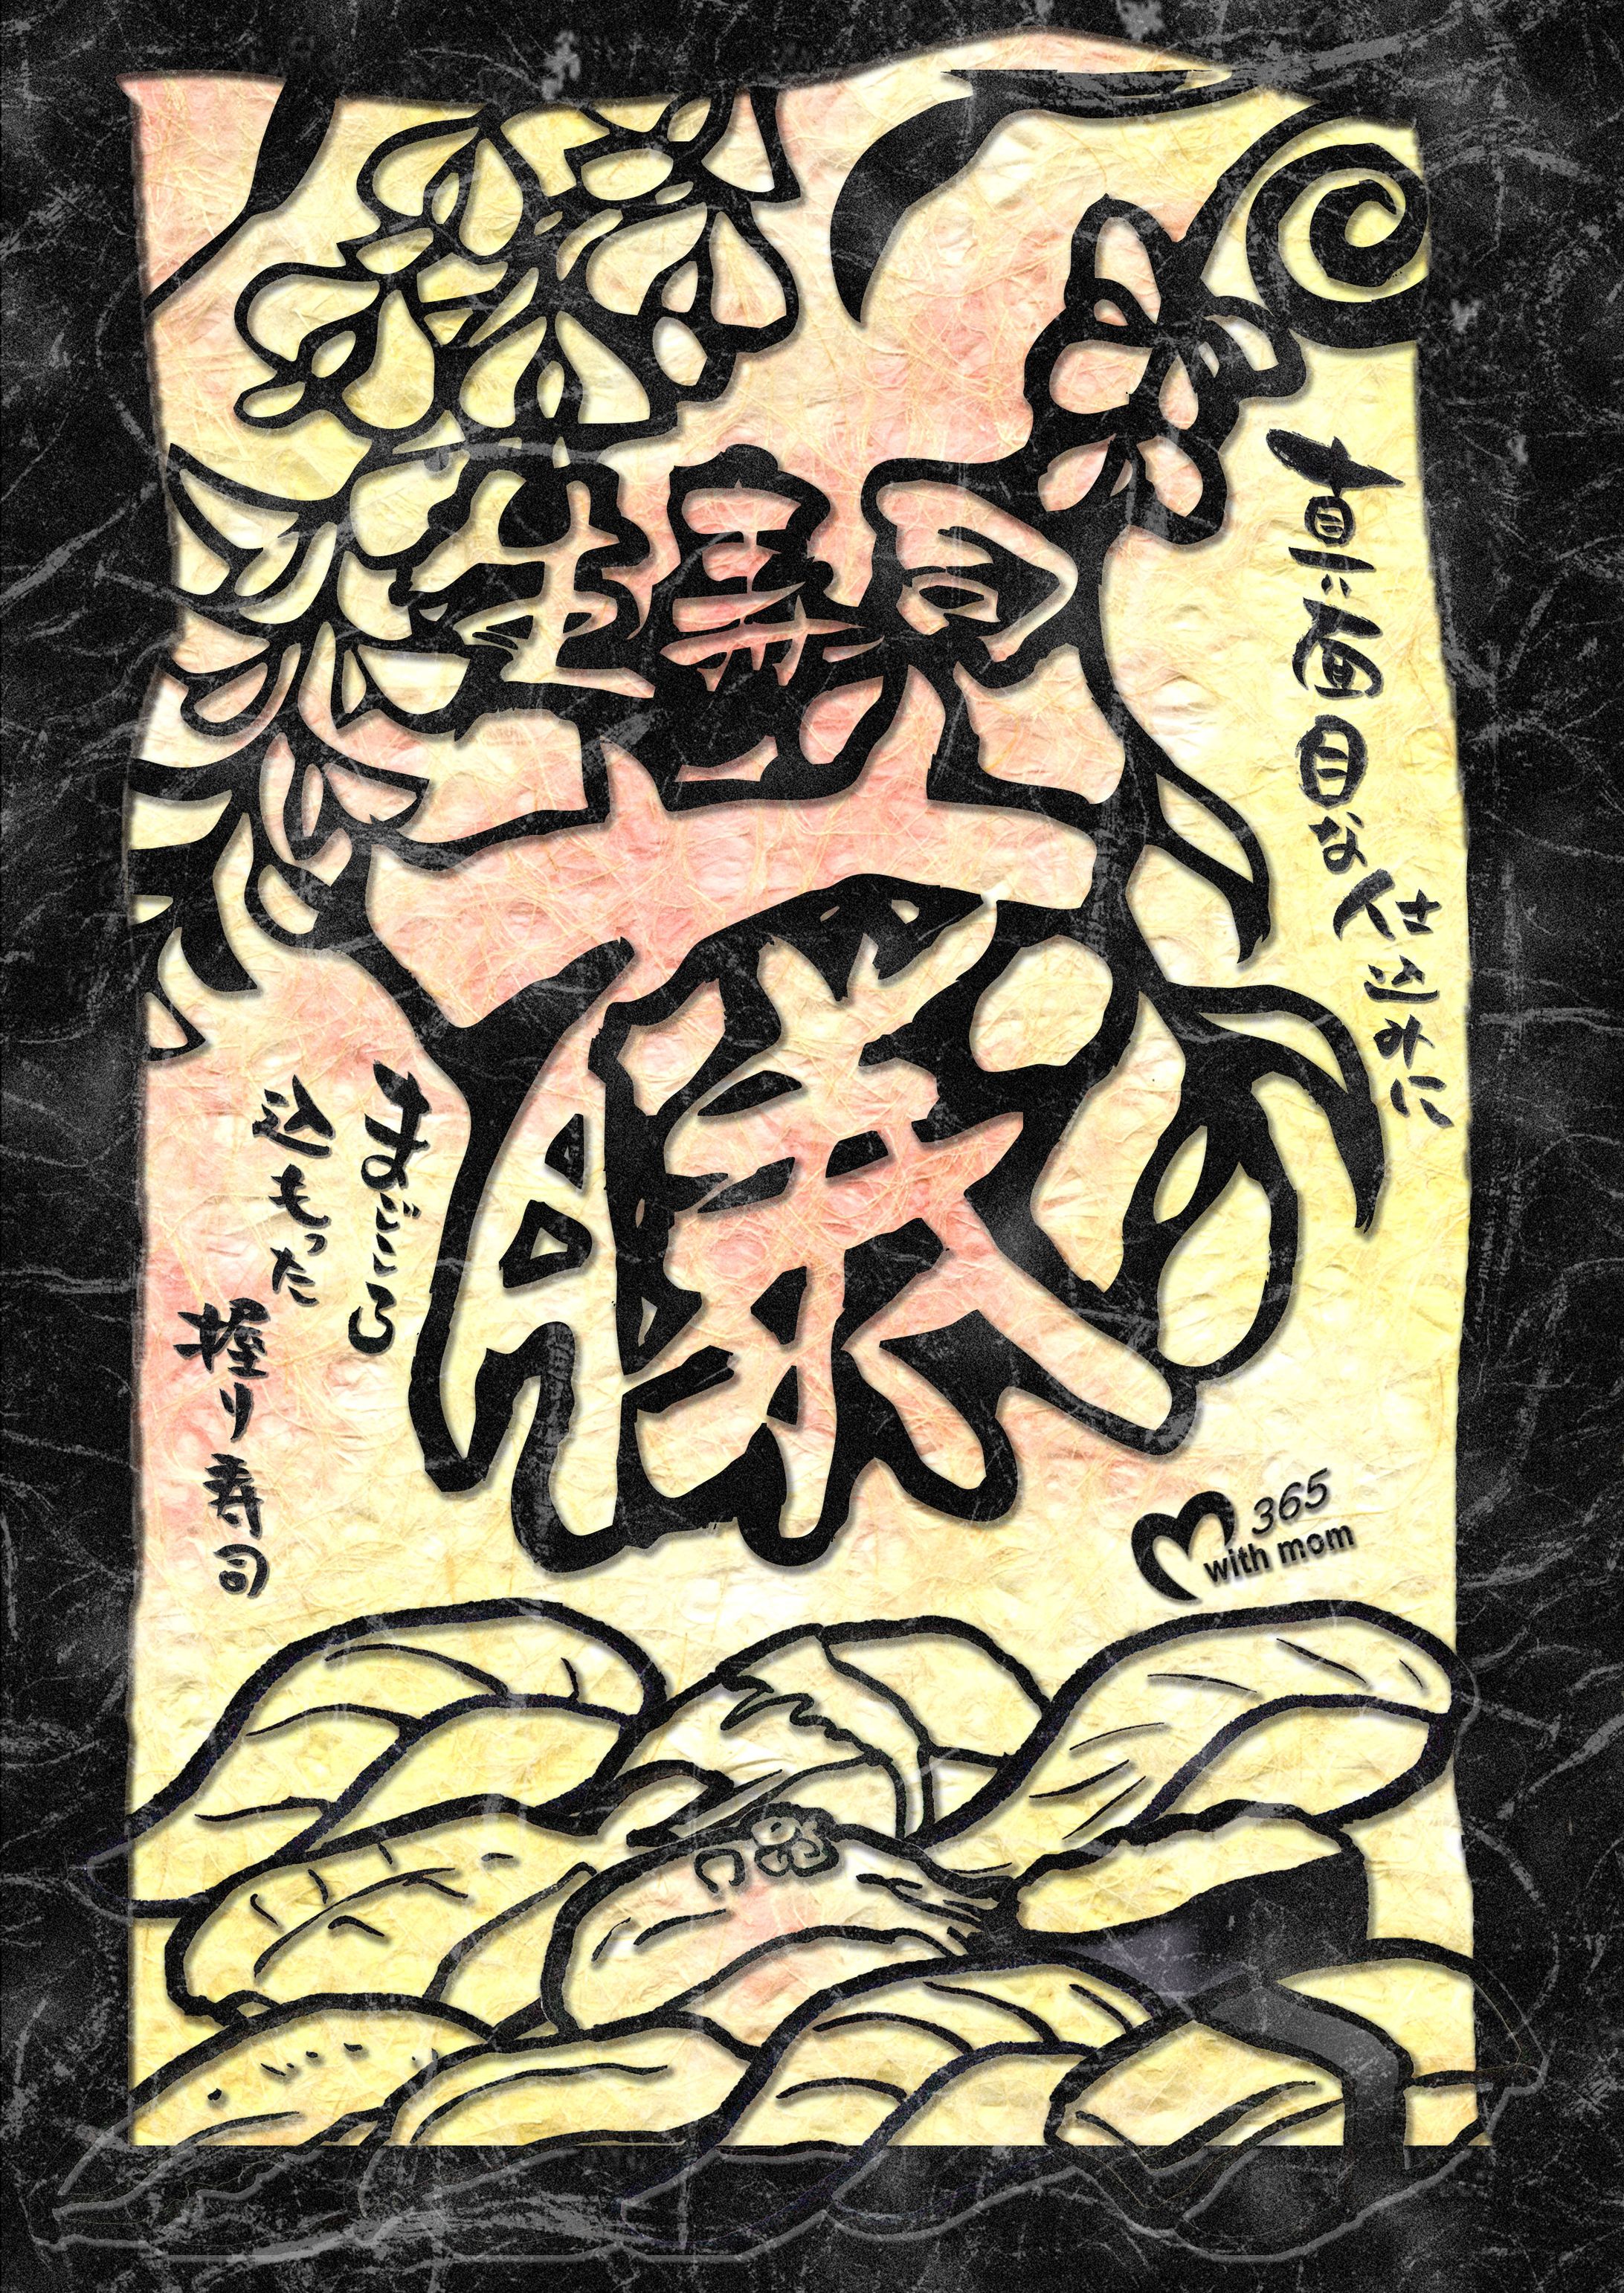 真面目な仕込みに
生壽司
藤
まごころ
込もった
握り寿司
365
with mom